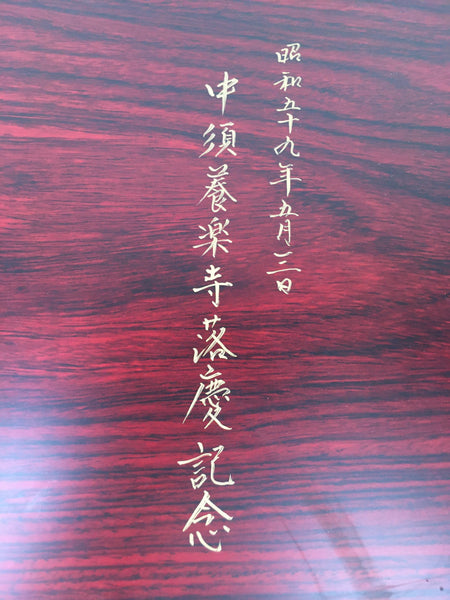 昭和五十九年五月三日
中須養楽寺落慶記念